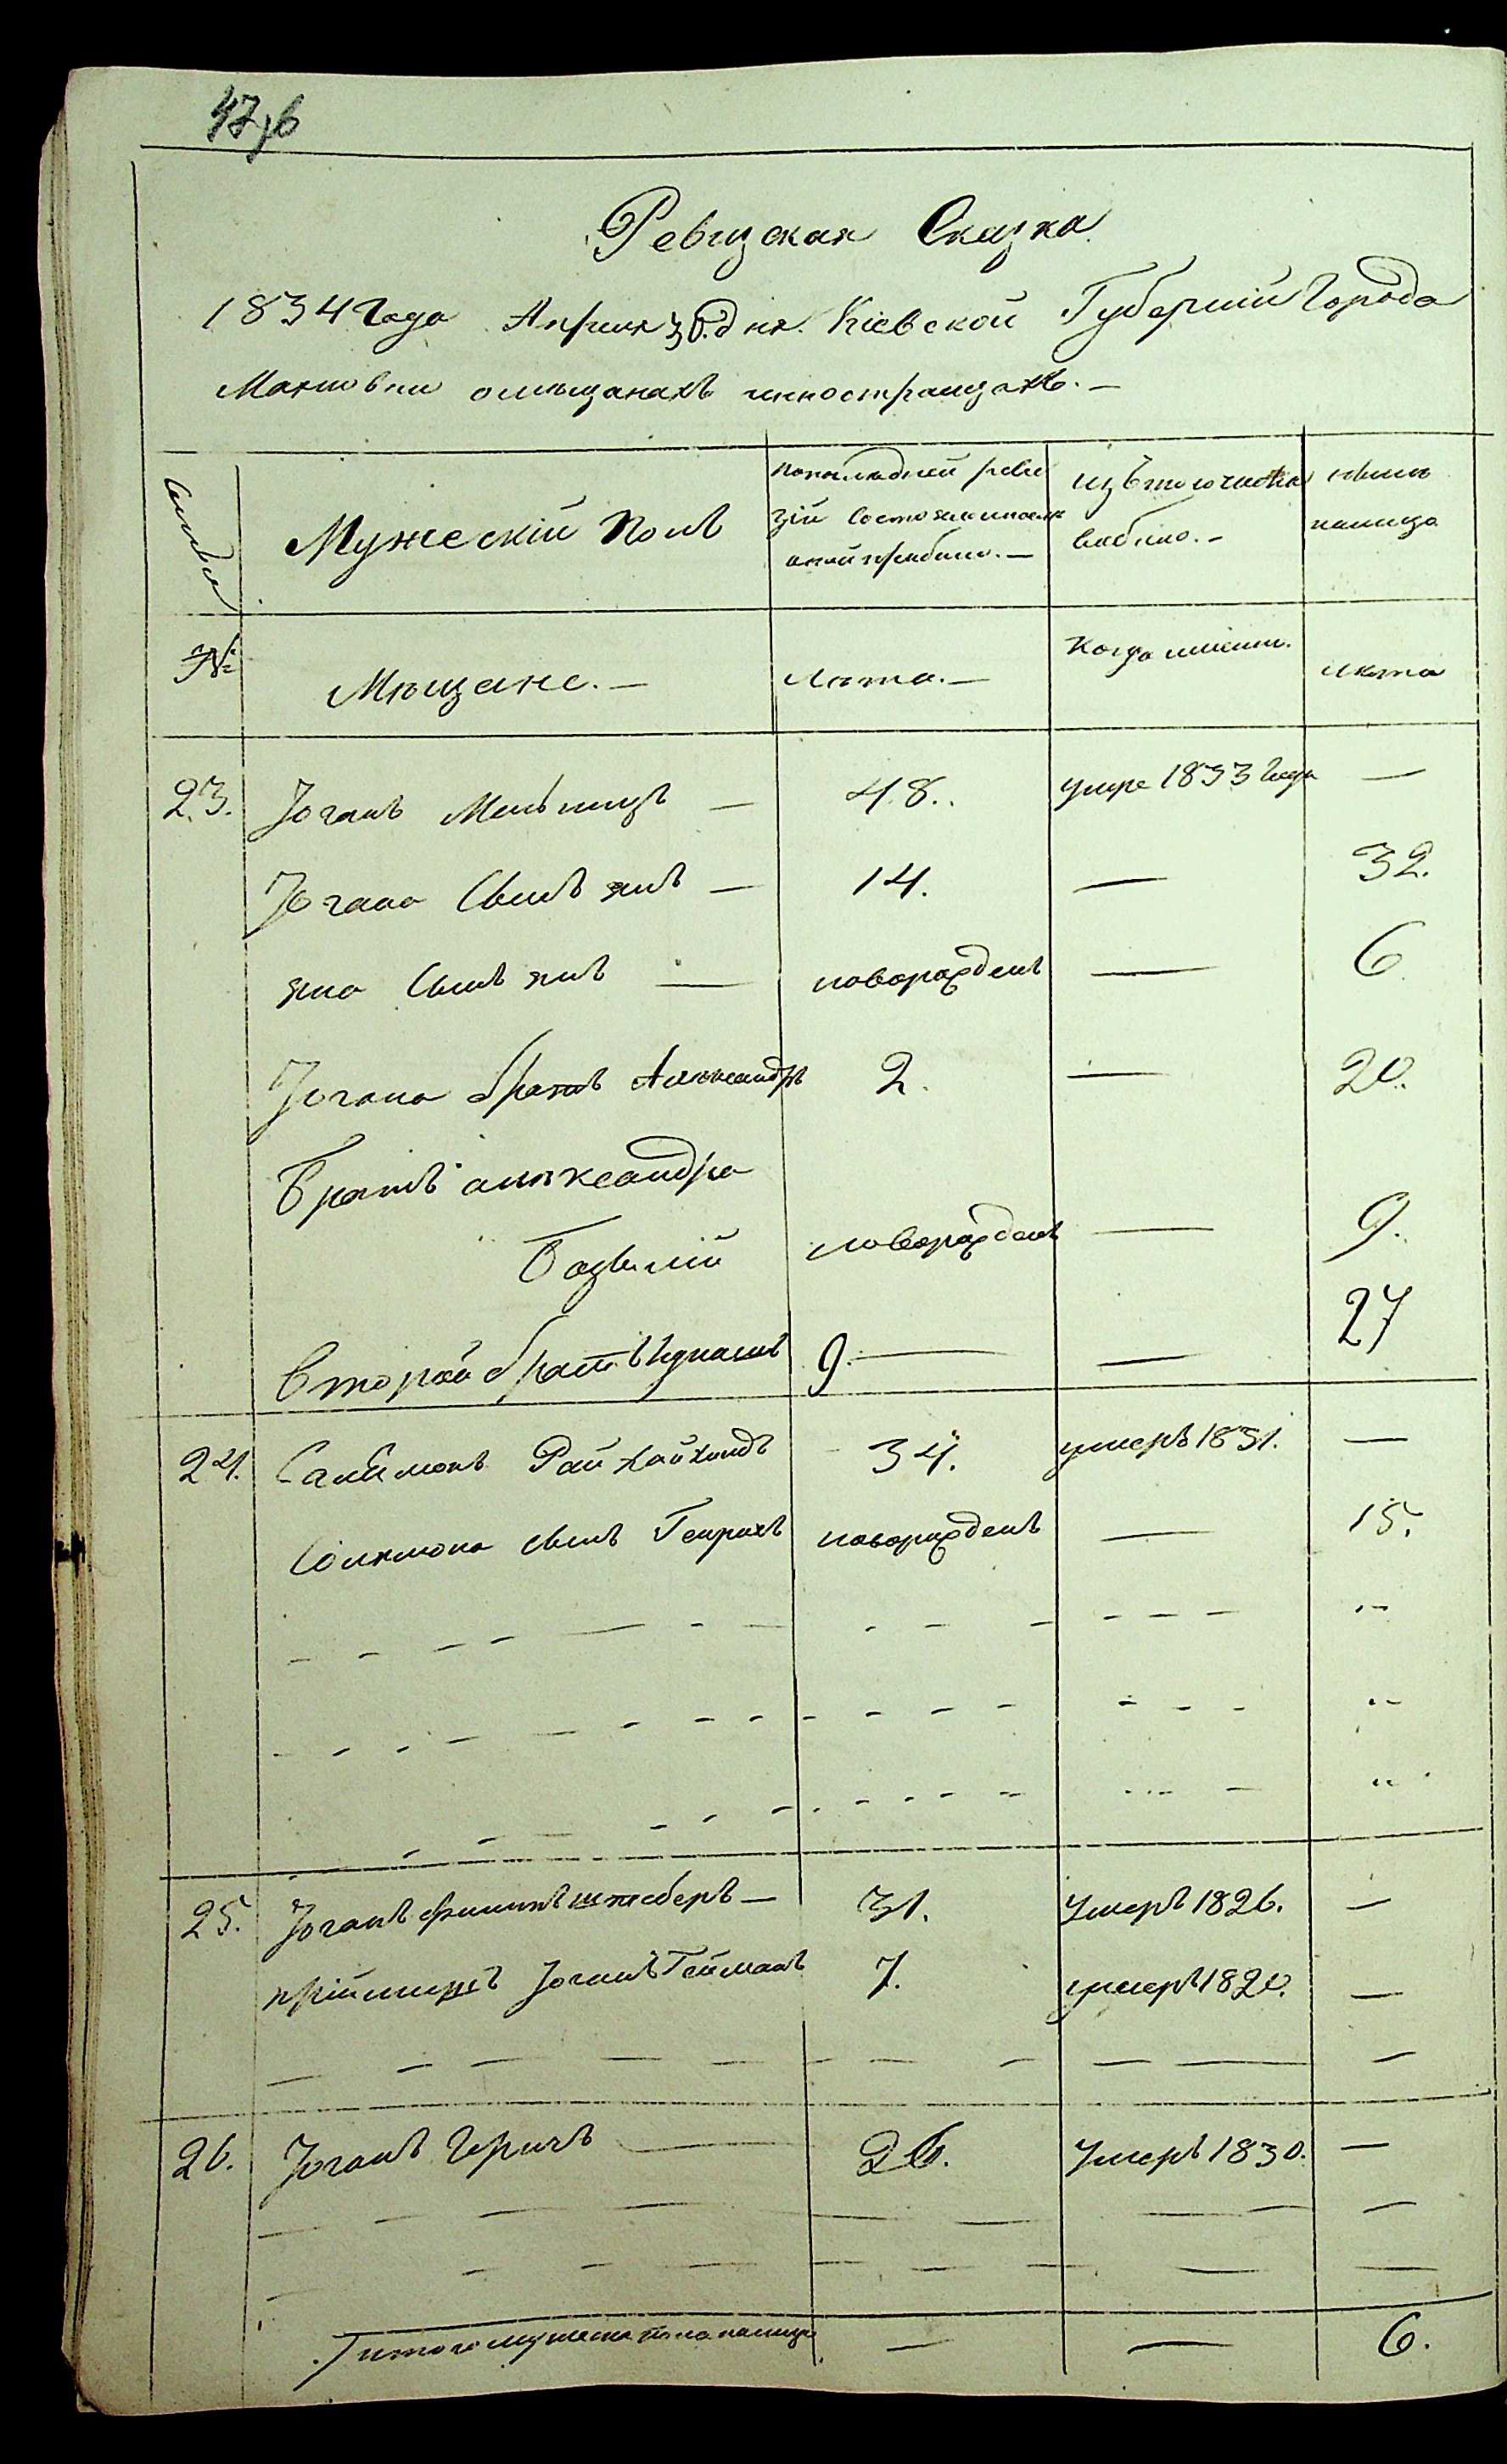 Ревизская Сказка
1834 Года Апреля 30. дня. Кіевской Губерніи Города
Махновки омещанахъ иностранцахъ. —
Семьи
Мужескій Полъ
попоследней реви
зіи состояло ипосле
оной прибыло. —
изътогочисла
выбыло. —
ныне
налицо
№
Мещане. —
Лета. —
Когда имянно.
лета
23. Іоганъ — 48. умре 1833 Года —
Іогана Сынъ янъ — 14. — 32.
яна Сынъ янъ — новорожденъ — 6
Іогана братъ Александръ 2. — 20.
Братъ александра
новорожденъ — 9.
второй братъ Игнатъ 9. — — 27
24. 34. умеръ 1831. —
Солемона сынъ Генрихъ новорожденъ — 15.
25. Іоганъ — 31. Умеръ 1826. —
пріймишъ Іоганъ Гейманъ 7. умеръ 1820. —
26. Іоганъ Герихъ — 26. Умеръ 1830. —
итого мужеска пола налицо — — 6.